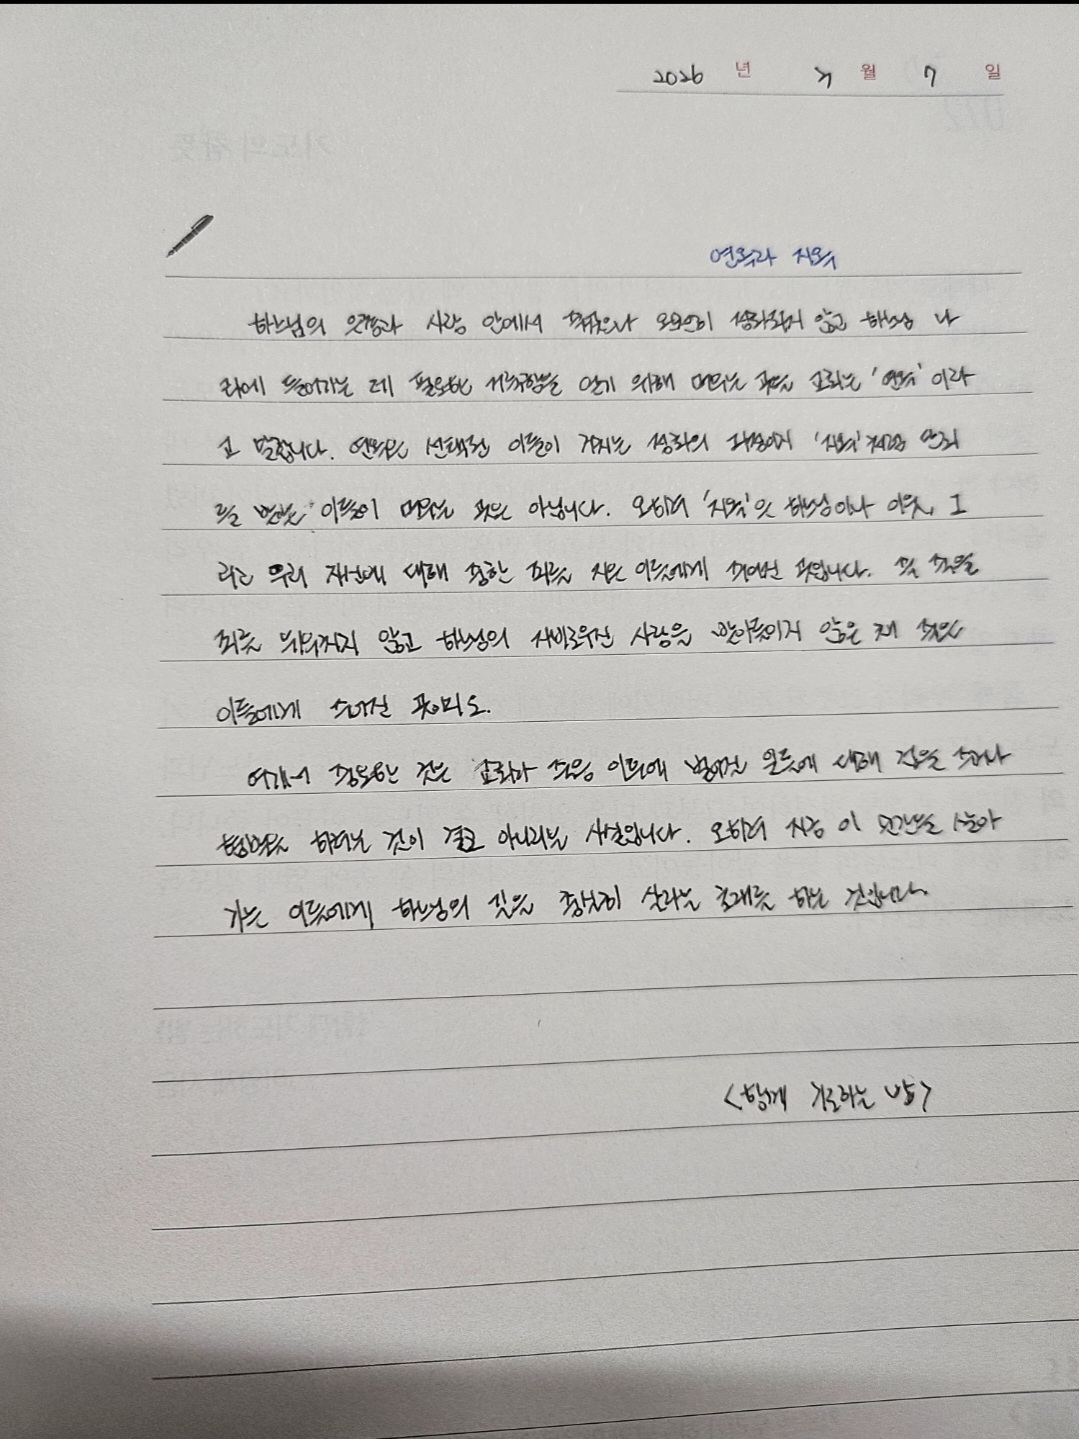 2026 년 월 7 일
연옥과 지옥
하느님의 은총과 사랑 안에서 죽었으나 온전히 정화되지 않고 하느님 나
라에 들어가는 데 필요한 거룩함을 얻기 위해 머무는 곳을 교회는 '연옥'이라
고 말합니다. 연옥은 선택된 이들이 거치는 정화의 과정이지 '지옥'처럼 단죄
를 받는 이들이 머무는 곳은 아닙니다. 오히려 '지옥'은 하느님이나 이웃, 그
리고 우리 자신에 대해 중한 죄를 지은 이들에게 주어진 곳입니다. 또 죽을
죄를 뉘우치지 않고 하느님의 자비로우신 사랑을 받아들이지 않은 채 죽은
이들에게 주어진
여기서 중요한 것은 교회가 죽음 이후에 벌어질 일들에 대해 겁을 주거나
협박을 하려는 것이 결코 아니라는 사실입니다. 오히려 지금 이 순간을 살아
가는 이들에게 하느님의 길을 충실히 살라는 초대를 하는 것입니다.
<함께 기도하는 밤>